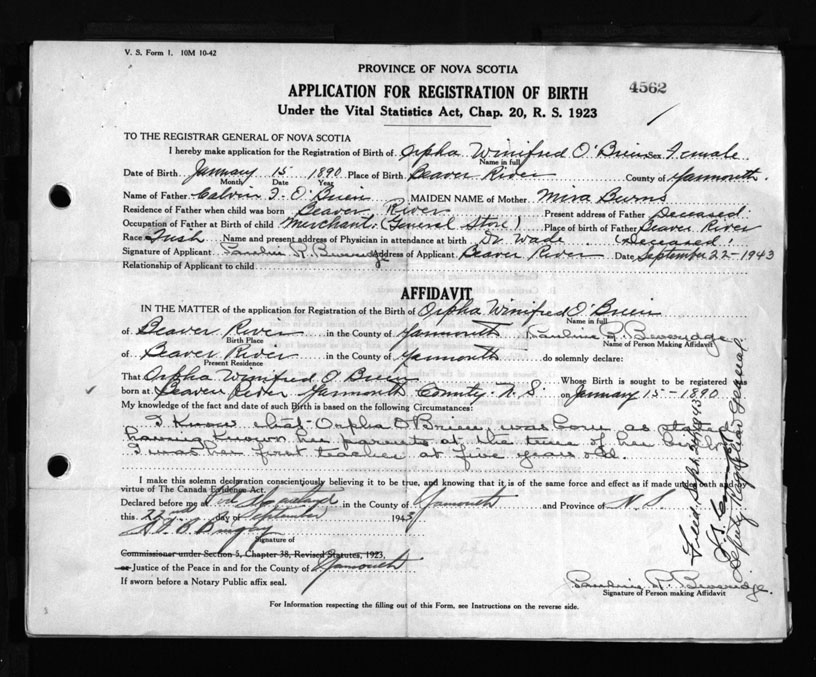 V. S. Form 1. 10M 10-42
PROVINCE OF NOVA SCOTIA
4562
APPLICATION FOR REGISTRATION OF BIRTH
Under the Vital Statistics Act, Chap. 20, R. S. 1923
TO THE REGISTRAR GENERAL OF NOVA SCOTIA
I hereby make application for the Registration of Birth of Orpha Winifred O'Brien Sex Female
Name in full
Date of Birth January 15 1890 Place of Birth Beaver River County of Yarmouth
Month Date Year
Name of Father Calvin F. O'Brien MAIDEN NAME of Mother Mira Burns
Residence of Father when child was born Beaver River Present address of Father Deceased
Occupation of Father at Birth of child Merchant (General Store) Place of birth of Father Beaver River
Race Irish Name and present address of Physician in attendance at birth Dr. Wade (Deceased)
Signature of Applicant Pauline R. Beveridge Address of Applicant Beaver River Date September 22 - 1943
Relationship of Applicant to child
AFFIDAVIT
IN THE MATTER of the application for Registration of the Birth of Orpha Winifred O'Brien
Name in full
of Beaver River in the County of Yarmouth Pauline R. Beveridge
Birth Place Name of Person Making Affidavit
of Beaver River in the County of Yarmouth do solemnly declare:
Present Residence
That Orpha Winifred O'Brien Whose Birth is sought to be registered was
born at Beaver River Yarmouth County N. S. on January 15 - 1890
My knowledge of the fact and date of such Birth is based on the following Circumstances:
I know that Orpha O'Brien was born as stated
having known her parents at the time of her birth
I was her first teacher at five years old.
I make this solemn declaration conscientiously believing it to be true, and knowing that it is of the same force and effect as if made under oath and by
virtue of The Canada Evidence Act.
Declared before me in the County of Yarmouth and Province of N. S.
this 22nd day of September 1943
Signature of
Commissioner under Section 5, Chapter 38, Revised Statutes, 1923,
or Justice of the Peace in and for the County of Yarmouth
If sworn before a Notary Public affix seal.
Pauline R. Beveridge
Signature of Person making Affidavit
For Information respecting the filling out of this Form, see Instructions on the reverse side.
Filed Sept. 1943
Deputy Registrar General.